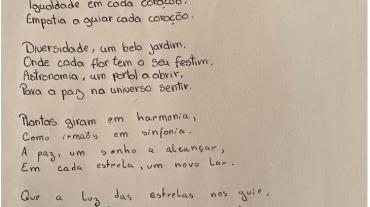 Igualdade em cada coração.
Empatia a guiar cada coração.
Diversidade, um belo jardim,
Onde cada flor tem o seu festim.
Astronomia, um portal a abrir,
Para a paz no universo sentir.
Plantas giram em harmonia,
Como irmãos em sinfonia.
A paz, um sonho a alcançar,
Em cada estrela, um novo lar.
Que a Luz das estrelas nos guie,